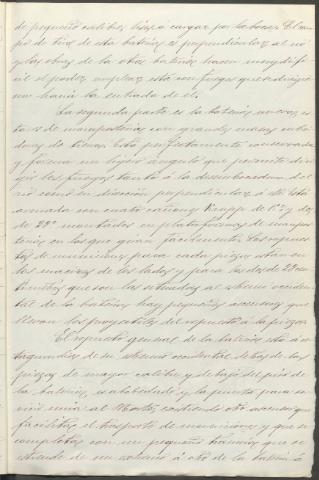 de pequeño calibre lisos á cargar por la boca. El cam
po de tiro de esta batería es perpendicular al rio
y las obras de la otra batería hacen muy difí
cil el poder emplear esta con fuegos que se dirijie
ran hacia la entrada de el.
La segunda parte es la batería nueva; es
ta es de mamposteria con grandes masas cubri
doras de tierra. Está perfectamente conservada
y forma un lijero ángulo que permite diri
gir los fuegos tanto á la desembocadura del
rio como en direccion perpendicular á el. Está
armada con cuatro cañones Krupp de 15 y dos
de 28 montados en plataformas de mampos
tería en las que giran facilmente. Los repues
tos de municiones para cada pieza estan en
los macizos de los lados y para los dos de 28 cen
tímetros que son los situados al estremo occiden
tal de la batería hay pequeños ascensores que
llevan los proyectiles del repuesto á la pieza.
El repuesto general de la batería está á re
taguardia de su estremo occidental debajo de las
piezas de mayor calibre y debajo del piso de
la batería, es abovedado y la puerta para su
servicio mira al Norte, existiendo otro ascensor que
facilita el trasporte de municiones y que se
completa con un pequeño tranvia que se
estiende de un estremo á otro de la batería á